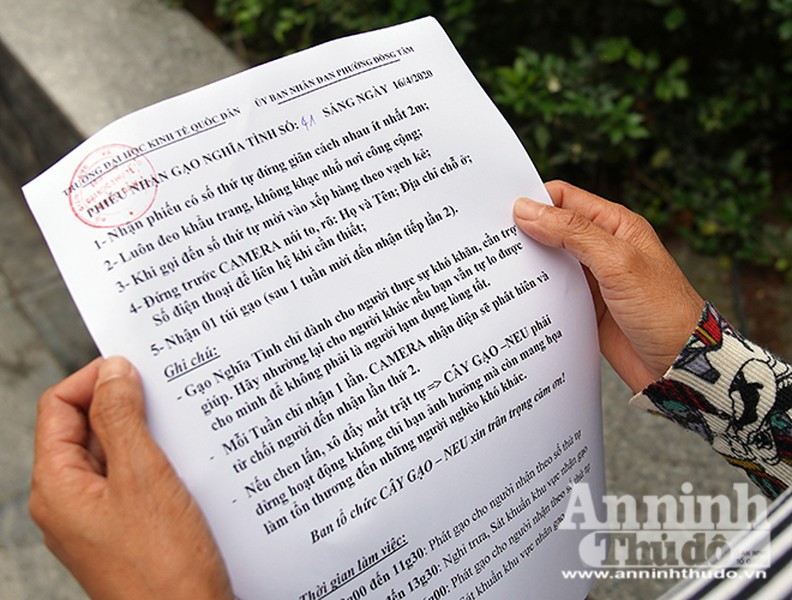 TRƯỜNG ĐẠI HỌC KINH TẾ QUỐC DÂN ỦY BAN NHÂN DÂN PHƯỜNG ĐỒNG TÂM
PHIẾU NHẬN GẠO NGHĨA TÌNH SỐ: 41 SÁNG NGÀY 16/4/2020
1- Nhận phiếu có số thứ tự đứng giãn cách nhau ít nhất 2m;
2- Luôn đeo khẩu trang, không khạc nhổ nơi công cộng;
3- Khi gọi đến số thứ tự mời vào xếp hàng theo vạch kẻ;
4- Đứng trước CAMERA nói to, rõ: Họ và Tên; Địa chỉ chỗ ở;
Số điện thoại để liên hệ khi cần thiết;
5- Nhận 01 túi gạo (sau 1 tuần mới đến nhận tiếp lần 2).
Ghi chú:
- Gạo Nghĩa Tình chỉ dành cho người thực sự khó khăn, cần trợ
giúp. Hãy nhường lại cho người khác nếu bạn vẫn tự lo được
cho mình để không phải là người lạm dụng lòng tốt.
- Mỗi Tuần chỉ nhận 1 lần. CAMERA nhận diện sẽ phát hiện và
từ chối người đến nhận lần thứ 2.
- Nếu chen lấn, xô đẩy mất trật tự => CÂY GẠO –NEU phải
dừng hoạt động không chỉ bạn ảnh hưởng mà còn mang họa
làm tổn thương đến những người nghèo khó khác.
Ban tổ chức CÂY GẠO – NEU xin trân trọng cảm ơn!
Thời gian làm việc:
00 đến 11g30: Phát gạo cho người nhận theo số thứ tự
đến 13g30: Nghỉ trưa, Sát khuẩn khu vực nhận gạo
g00: Phát gạo cho người nhận theo số thứ tự
Sát khuẩn khu vực nhận gạo
An ninh
Thủ đô
www.anninhthudo.vn